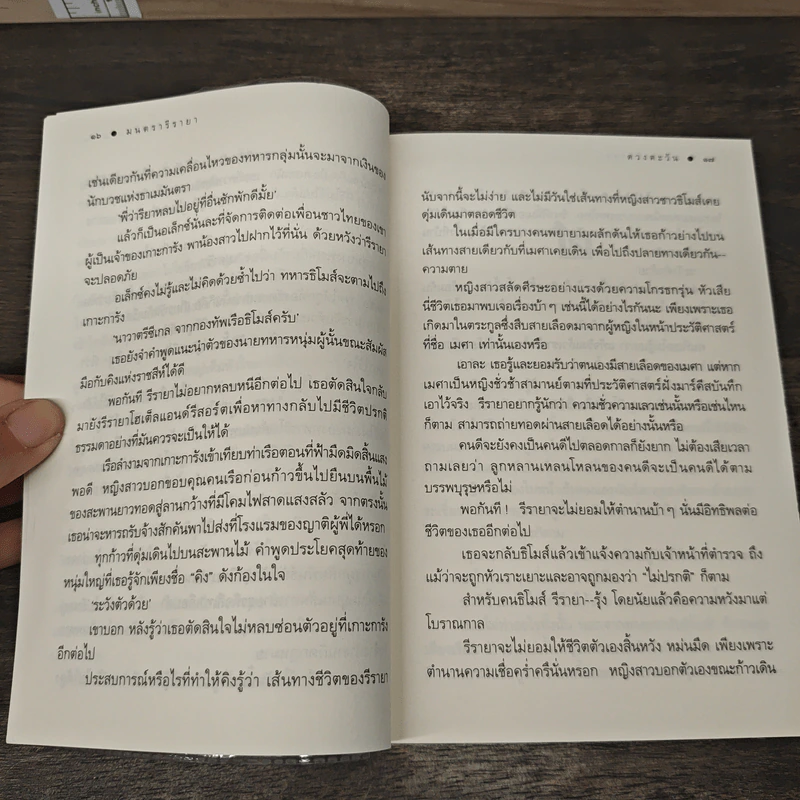 ๑๖ ● มนตรารีรายา
เช่นเดียวกันที่ความเคลื่อนไหวของทหารกลุ่มนั้นจะมาจากเงินของ
นักบวชแห่งธาเมมันตรา
'พี่ว่ารียาหลบไปอยู่ที่อื่นซักพักดีมั้ย'
แล้วก็เป็นอเล็กซ์นั่นละที่จัดการติดต่อเพื่อนชาวไทยของเขา
ผู้เป็นเจ้าของเกาะการัง พาน้องสาวไปฝากไว้ที่นั่น ด้วยหวังว่ารีรายา
จะปลอดภัย
อเล็กซ์คงไม่รู้และไม่คิดด้วยซ้ำไปว่า ทหารธิโมส์จะตามไปถึง
เกาะการัง
'นาวาตรีซีเกล จากกองทัพเรือธิโมส์ครับ'
เธอยังจำคำพูดแนะนำตัวของนายทหารหนุ่มผู้นั้นขณะสัมผัส
มือกับคิงแห่งราชสีห์ได้ดี
พอกันที รีรายาไม่อยากหลบหนีอีกต่อไป เธอตัดสินใจกลับ
มายังรีรายาโฮเต็ลแอนด์รีสอร์ตเพื่อหาทางกลับไปมีชีวิตปรกติ
ธรรมดาอย่างที่มันควรจะเป็นให้ได้
เรือลำงามจากเกาะการังเข้าเทียบท่าเรือตอนที่ฟ้ามืดมิดสิ้นแสง
พอดี หญิงสาวบอกขอบคุณคนเรือก่อนก้าวขึ้นไปยืนบนพื้นไม้
ของสะพานยาวทอดสู่ลานกว้างที่มีโคมไฟสาดแสงสลัว จากตรงนั้น
เธอน่าจะหารถรับจ้างสักคันพาไปส่งที่โรงแรมของญาติผู้พี่ได้หรอก
ทุกก้าวที่ดุ่มเดินไปบนสะพานไม้ คำพูดประโยคสุดท้ายของ
หนุ่มใหญ่ที่เธอรู้จักเพียงชื่อ "คิง" ดังก้องในใจ
'ระวังตัวด้วย'
เขาบอก หลังรู้ว่าเธอตัดสินใจไม่หลบซ่อนตัวอยู่ที่เกาะการัง
อีกต่อไป
ประสบการณ์หรือไรที่ทำให้คิงรู้ว่า เส้นทางชีวิตของรีรายา
ดวงตะวัน ● ๑๗
นับจากนี้จะไม่ง่าย และไม่มีวันใช่เส้นทางที่หญิงสาวชาวธิโมส์เคย
ดุ่มเดินมาตลอดชีวิต
ในเมื่อมีใครบางคนพยายามผลักดันให้เธอก้าวย่างไปบน
เส้นทางสายเดียวกับที่เมศาเคยเดิน เพื่อไปถึงปลายทางเดียวกัน--
ความตาย
หญิงสาวสลัดศีรษะอย่างแรงด้วยความโกรธกรุ่น หัวเสีย
นี่ชีวิตเธอมาพบเจอเรื่องบ้าๆ เช่นนี้ได้อย่างไรกันนะ เพียงเพราะเธอ
เกิดมาในตระกูลซึ่งสืบสายเลือดมาจากผู้หญิงในหน้าประวัติศาสตร์
ที่ชื่อ เมศา เท่านั้นเองหรือ
เอาละ เธอรู้และยอมรับว่าตนเองมีสายเลือดของเมศา แต่หาก
เมศาเป็นหญิงชั่วช้าสามานย์ตามที่ประวัติศาสตร์ฝั่งมาร์คีสบันทึก
เอาไว้จริง รีรายาอยากรู้นักว่า ความชั่วความเลวเช่นนั้นหรือเช่นไหน
ก็ตาม สามารถถ่ายทอดผ่านสายเลือดได้อย่างนั้นหรือ
คนดีจะยังคงเป็นคนดีไปตลอดกาลก็ยังยาก ไม่ต้องเสียเวลา
ถามเลยว่า ลูกหลานเหลนโหลนของคนดีจะเป็นคนดีได้ตาม
บรรพบุรุษหรือไม่
พอกันที ! รีรายาจะไม่ยอมให้ตำนานบ้าๆ นั่นมีอิทธิพลต่อ
ชีวิตของเธออีกต่อไป
เธอจะกลับธิโมส์แล้วเข้าแจ้งความกับเจ้าหน้าที่ตำรวจ ถึง
แม้ว่าจะถูกหัวเราะเยาะและอาจถูกมองว่า "ไม่ปรกติ" ก็ตาม
สำหรับคนธิโมส์ รีรายา--รุ้ง โดยนัยแล้วคือความหวังมาแต่
โบราณกาล
รีรายาจะไม่ยอมให้ชีวิตตัวเองสิ้นหวัง หม่นมืด เพียงเพราะ
ตำนานความเชื่อคร่ำครึนั่นหรอก หญิงสาวบอกตัวเองขณะก้าวเดิน